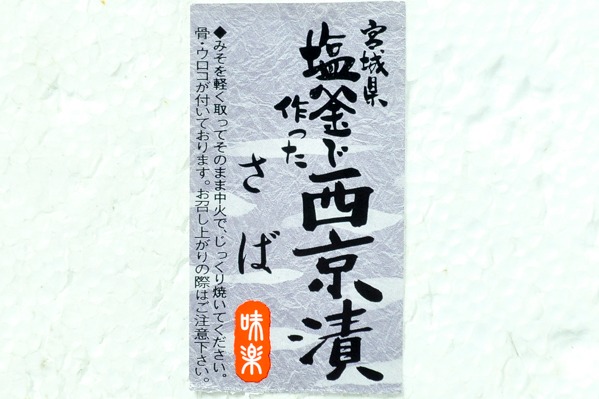 宮城県
塩釜で
作った
西京漬
さば
味楽
◆みそを軽く取ってそのまま中火で、じっくり焼いてください。
骨・ウロコが付いております。お召し上がりの際はご注意下さい。